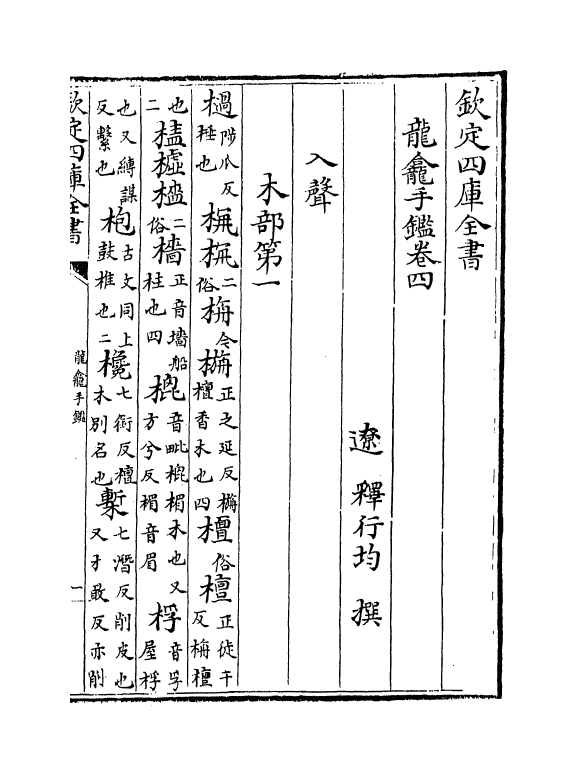 欽定四庫全書
龍龕手鑑卷四
遼 釋行均 撰
入聲
木部第一
檛陟瓜反棰也 二俗 栴今 正之延反栴檀香木也四 檀俗 檀正徒干反栴檀
也二 二俗 檣正音墻船柱也四 槐音毗槐楣木也又方兮反楣音眉 桴音孚屋桴
也又縛謀反繫也 枹古文同上鼓椎也二 欃七銜反檀木別名也 槧七潛反削皮也又才敢反亦削
欽定四庫全書
龍龕手鑑
一